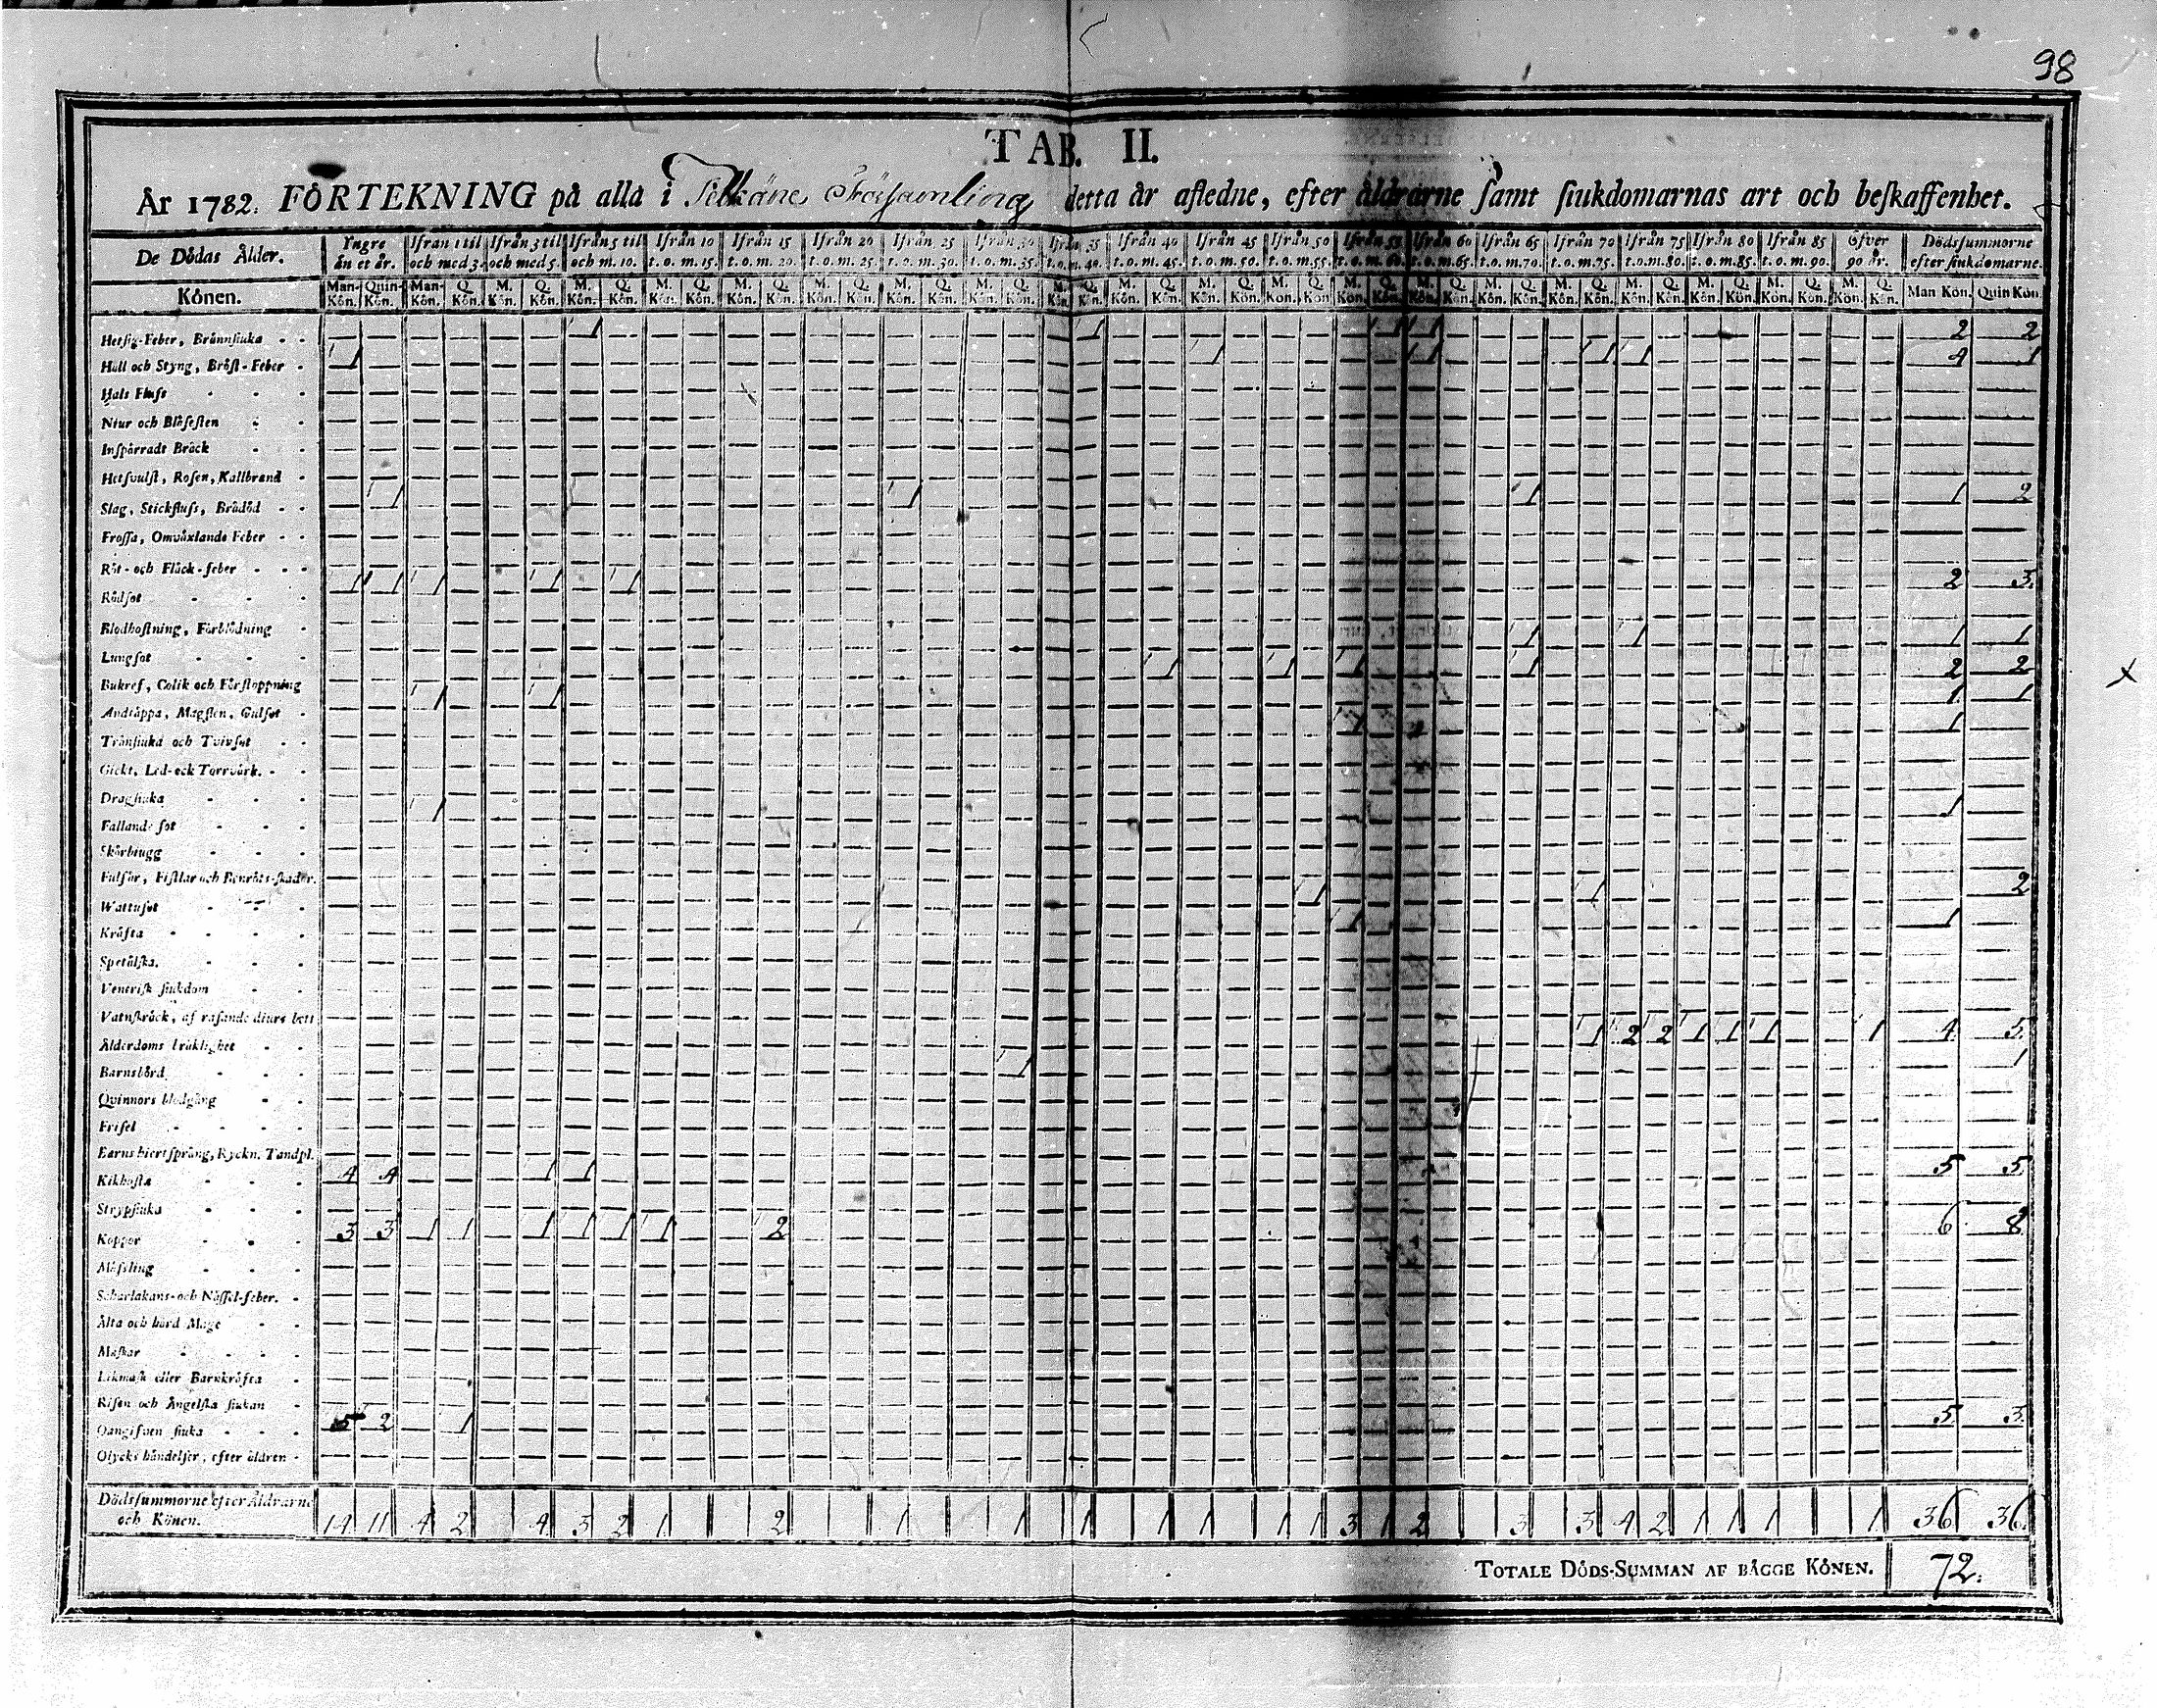 98
TAB. II.
År 1782. FÖRTEKNING på alla i Församling detta år afledne, efter åldrarne samt siukdomarnas art och beskaffenhet.
De Dödas Ålder. Yngre än et år. Ifrån 1 til och med 3. Ifrån 3 til och med 5. Ifrån 5 til och m. 10. Ifrån 10 t.o.m. 15. Ifrån 15 t.o.m. 20. Ifrån 20 t.o.m. 25. Ifrån 25 t.o.m. 30. Ifrån 30 t.o.m. 35. Ifrån 35 t.o.m. 40. Ifrån 40 t.o.m. 45. Ifrån 45 t.o.m. 50. Ifrån 50 t.o.m. 55. Ifrån 55 t.o.m. 60. Ifrån 60 t.o.m. 65. Ifrån 65 t.o.m. 70. Ifrån 70 t.o.m. 75. Ifrån 75 t.o.m. 80. Ifrån 80 t.o.m. 85. Ifrån 85 t.o.m. 90. Öfver 90 år. Dödssummorne efter siukdomarne.
Könen. Man-Kön. Quin-Kön. Man-Kön. Q. Kön. M. Kön. Q. Kön. M. Kön. Q. Kön. M. Kön. Q. Kön. M. Kön. Q. Kön. M. Kön. Q. Kön. M. Kön. Q. Kön. M. Kön. Q. Kön. M. Kön. Q. Kön. M. Kön. Q. Kön. M. Kön. Q. Kön. M. Kön. Q. Kön. M. Kön. Q. Kön. M. Kön. Q. Kön. M. Kön. Q. Kön. M. Kön. Q. Kön. M. Kön. Q. Kön. M. Kön. Q. Kön. M. Kön. Q. Kön. M. Kön. Q. Kön. Man Kön. Quin Kön.
Hetsig-Feber, Brännsiuka 1 1 1 1 2 2
Håll och Styng, Bröst-Feber 1 1 1 1 1 4 1
Hals Fluss
Niur och Blåsesten
Inspärradt Bråck
Hetsvulst, Rosen, Kallbrand
Slag, Stickfluss, Brådöd 1 1 1 1 2
Frossa, Omväxlande Feber
Röt- och Fläck-feber
Rödsot 1 1 1 1 1 2 3
Blodhostning, Förblödning
Lungsot 1 1 1 1
Bukref, Colik och Förstoppning 1 1 1 1 2 2
Andtäppa, Magsten, Gulsot 1 1 1 1
Trånsiuka och Tvinsot 1 1
Gickt, Led- och Torrvärk.
Dragsiuka
Fallande sot 1 1
Skörbiugg
Fulsår, Fistlar och Benröts-skador.
Wattusot 1 1 2
Kräfta 1 1
Spetälska.
Venerisk siukdom
Vatnskräck, af rasande diurs bett
Ålderdoms bräklighet 1 2 2 1 1 1 1 4 5
Barnsbörd 1 1
Qvinnors blodgång
Frisel
Barns hiertsprång, Ryckn. Tandpl.
Kikhosta 4 4 1 1 5 5
Strypsiuka
Koppor 3 3 1 1 1 1 1 1 2 6 8
Mässling
Scharlakans- och Nässel-feber.
Älta och hård Mage
Maskar
Likmask eller Barnkräfta
Risen och Ängelska siukan
Oangifven siuka 5 2 1 5 3
Olycks händelser, efter äldren
Dödssummorne efter Åldrarne och Könen. 14 11 4 2 4 3 2 1 2 1 1 1 1 1 1 1 3 1 2 3 3 4 2 1 1 1 1 36 36
TOTALE DÖDS-SUMMAN AF BÄGGE KÖNEN. 72.